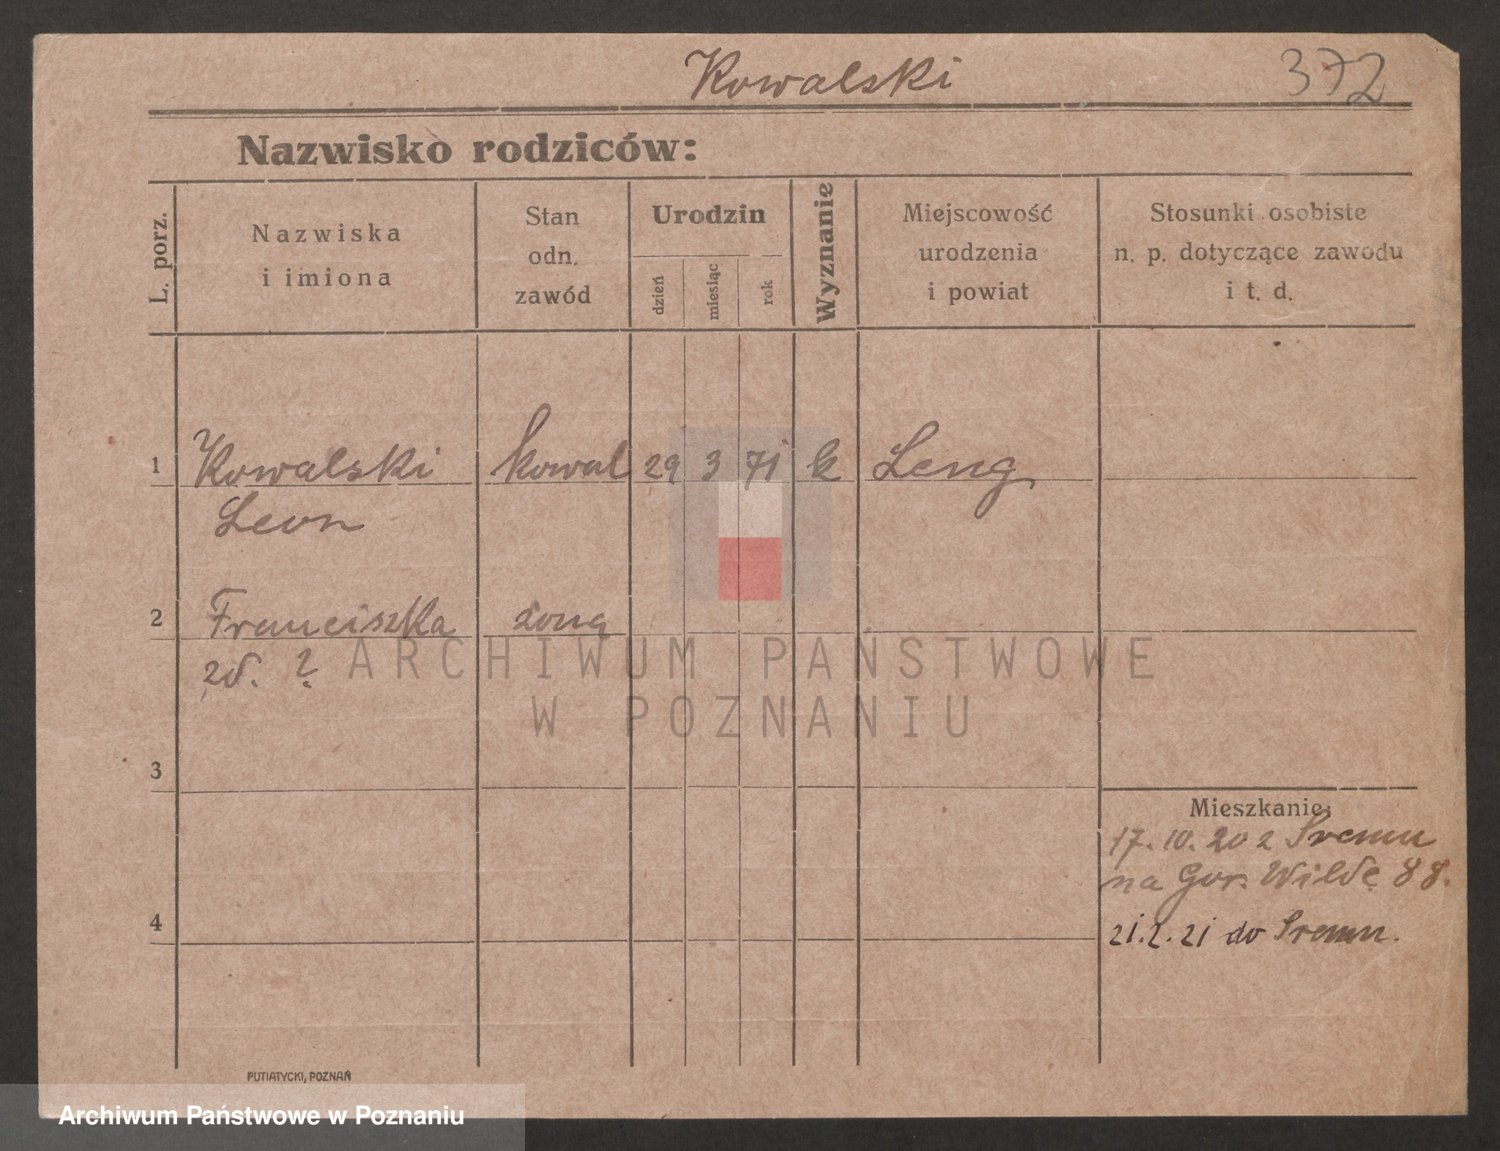 Kowalski 372
Nazwisko rodziców:
L. porz.
Nazwiska
i imiona
Stan
odn.
zawód
Urodzin
dzień
miesiąc
rok
Wyznanie
Miejscowość
urodzenia
i powiat
Stosunki osobiste
n. p. dotyczące zawodu
i t. d.
1 Kowalski kowal 29 3 71 k Leng
Leon
2 Franciszka żona
zd. ?
ARCHIWUM PAŃSTWOWE
W POZNANIU
3
Mieszkanie:
17.10.20 z Śremu
na Gór. Wildę 88.
4
21.2.21 do Śremu.
PUTIATYCKI, POZNAŃ
Archiwum Państwowe w Poznaniu